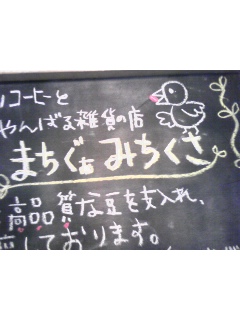 コーヒーと
やんばる雑貨の店
まちぐぁ みちくさ
高品質な豆を仕入れ、
しております。